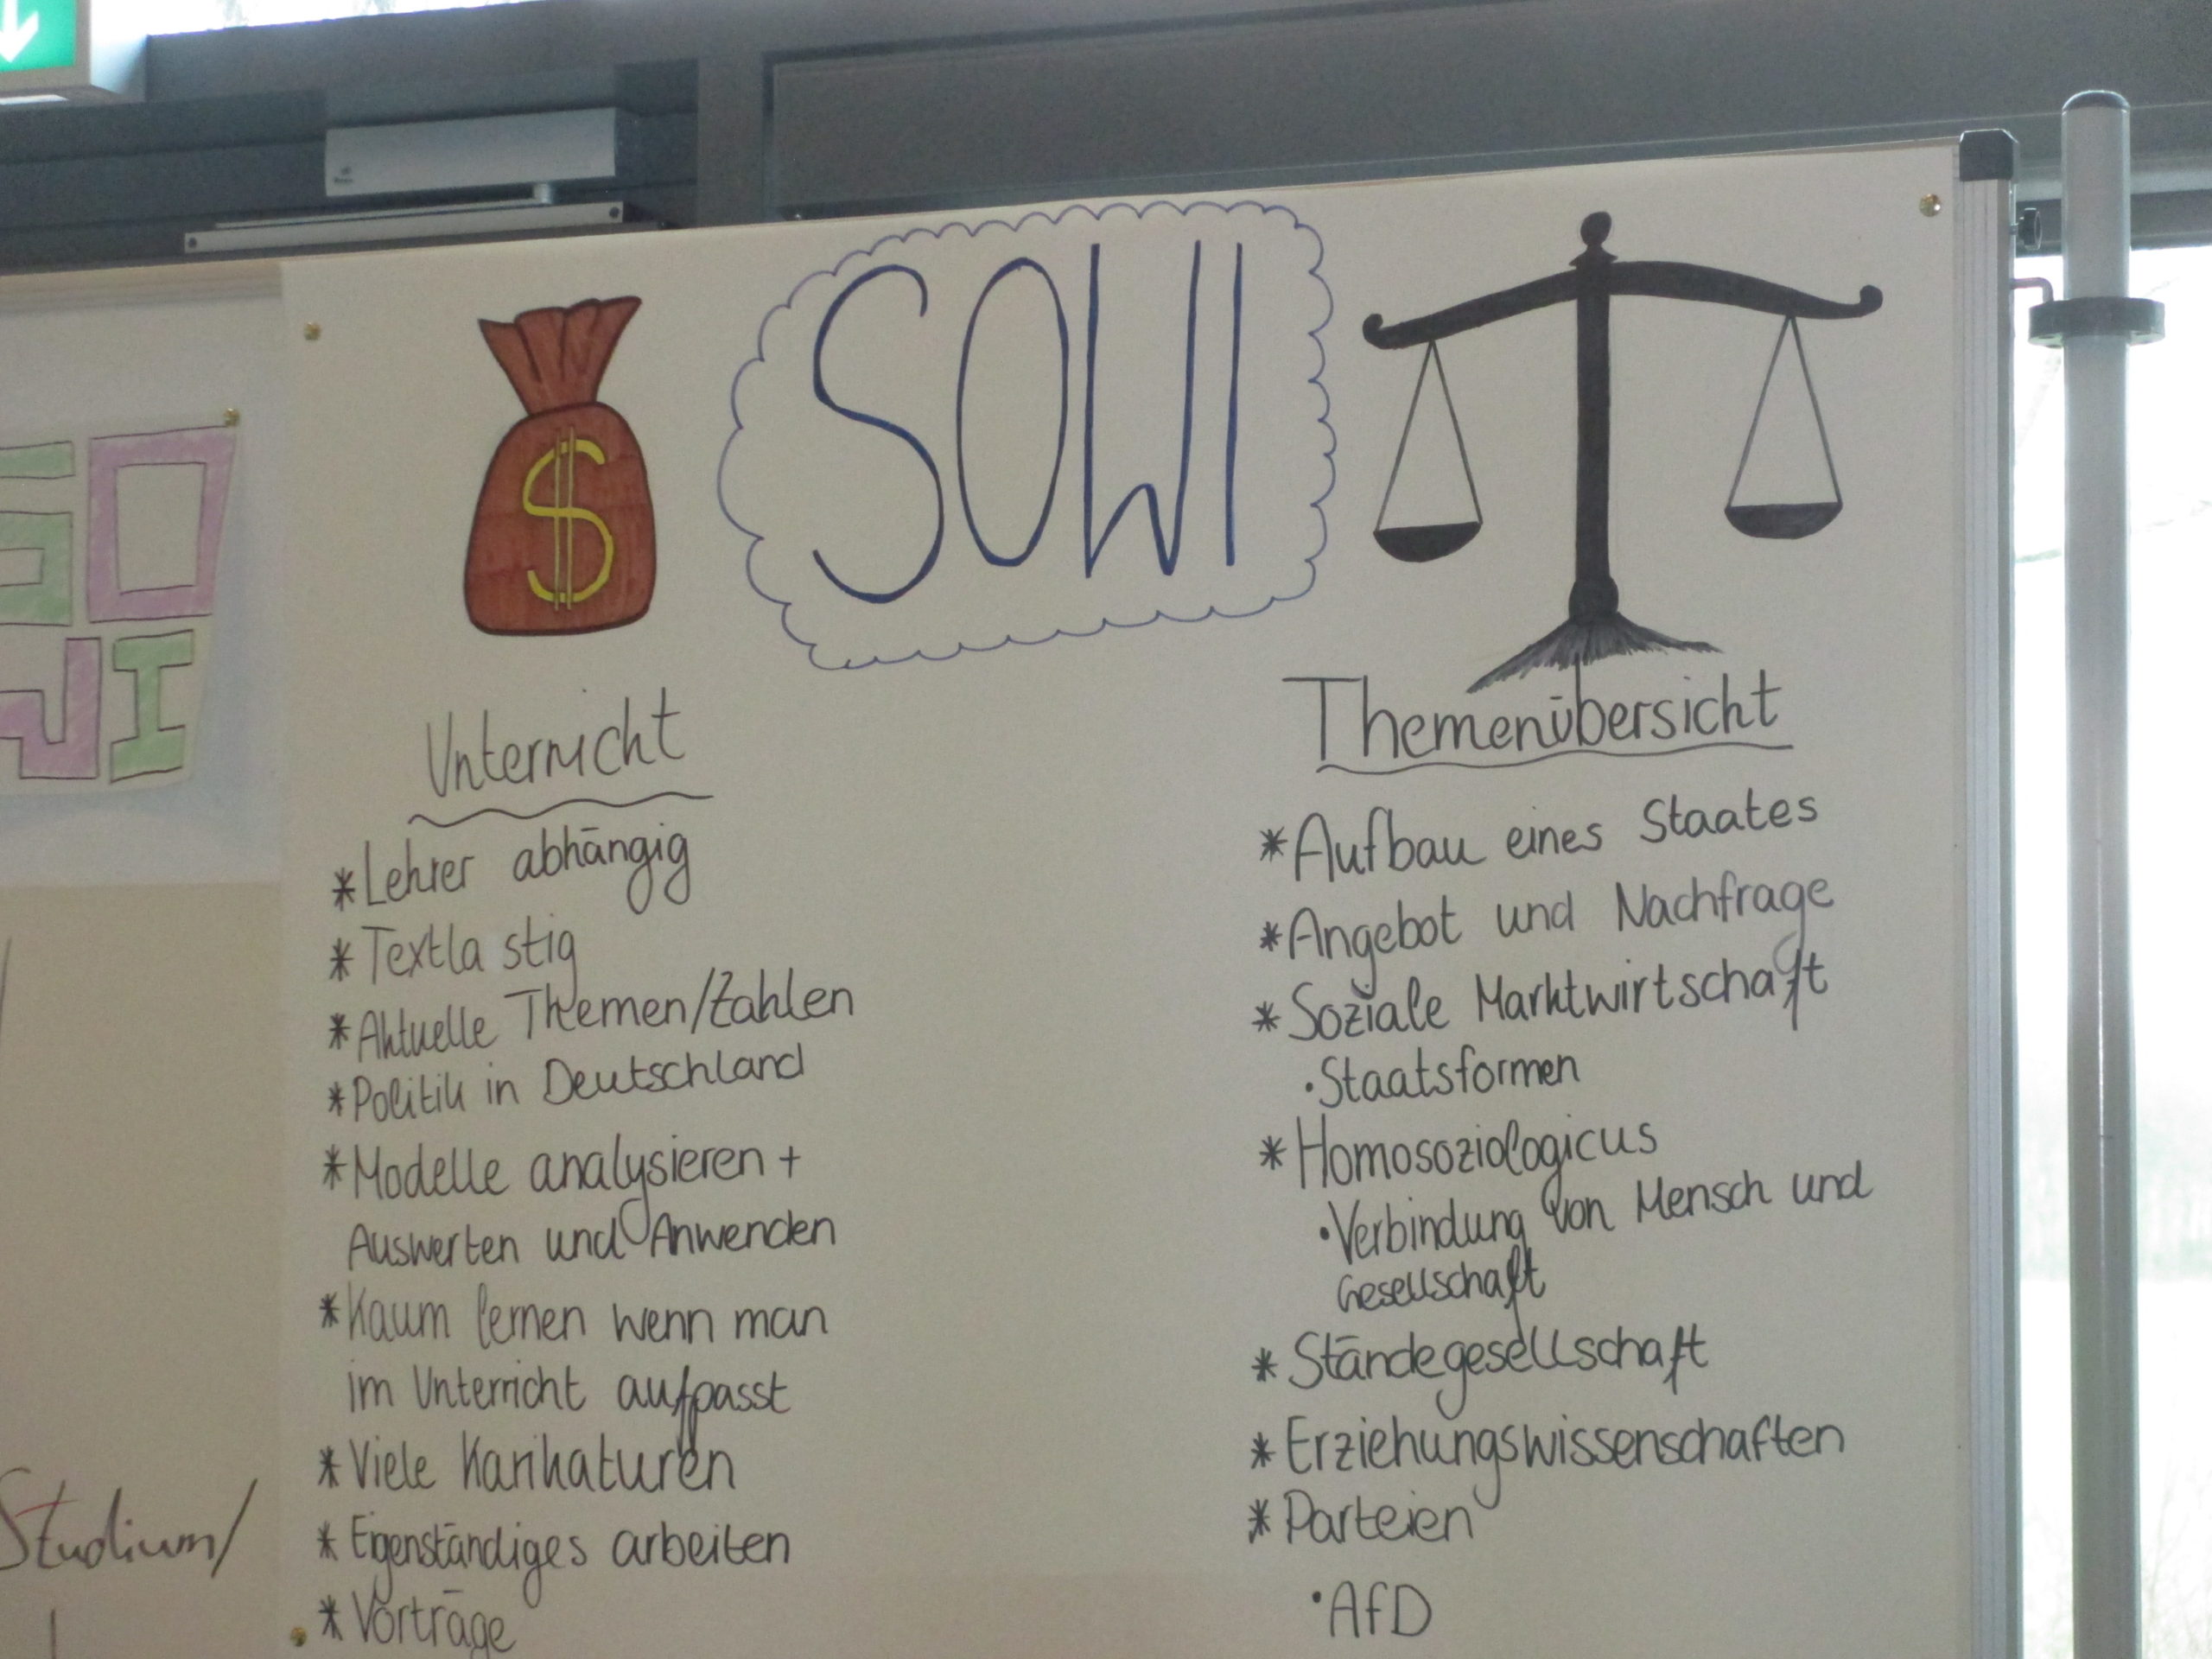 SOWI
SO
WI
Unterricht
*Lehrer abhängig
*Textla stig
*Aktuelle Themen/Zahlen
*Politik in Deutschland
*Modelle analysieren +
Auswerten und Anwenden
*Kaum lernen wenn man
im Unterricht aufpasst
*Viele Karikaturen
*Eigenständiges arbeiten
*Vorträge
Themenübersicht
*Aufbau eines Staates
*Angebot und Nachfrage
*Soziale Marktwirtschaft
•Staatsformen
*Homosoziologicus
•Verbindung von Mensch und
Gesellschaft
*Ständegesellschaft
*Erziehungswissenschaften
*Parteien
•AfD
Studium/
$